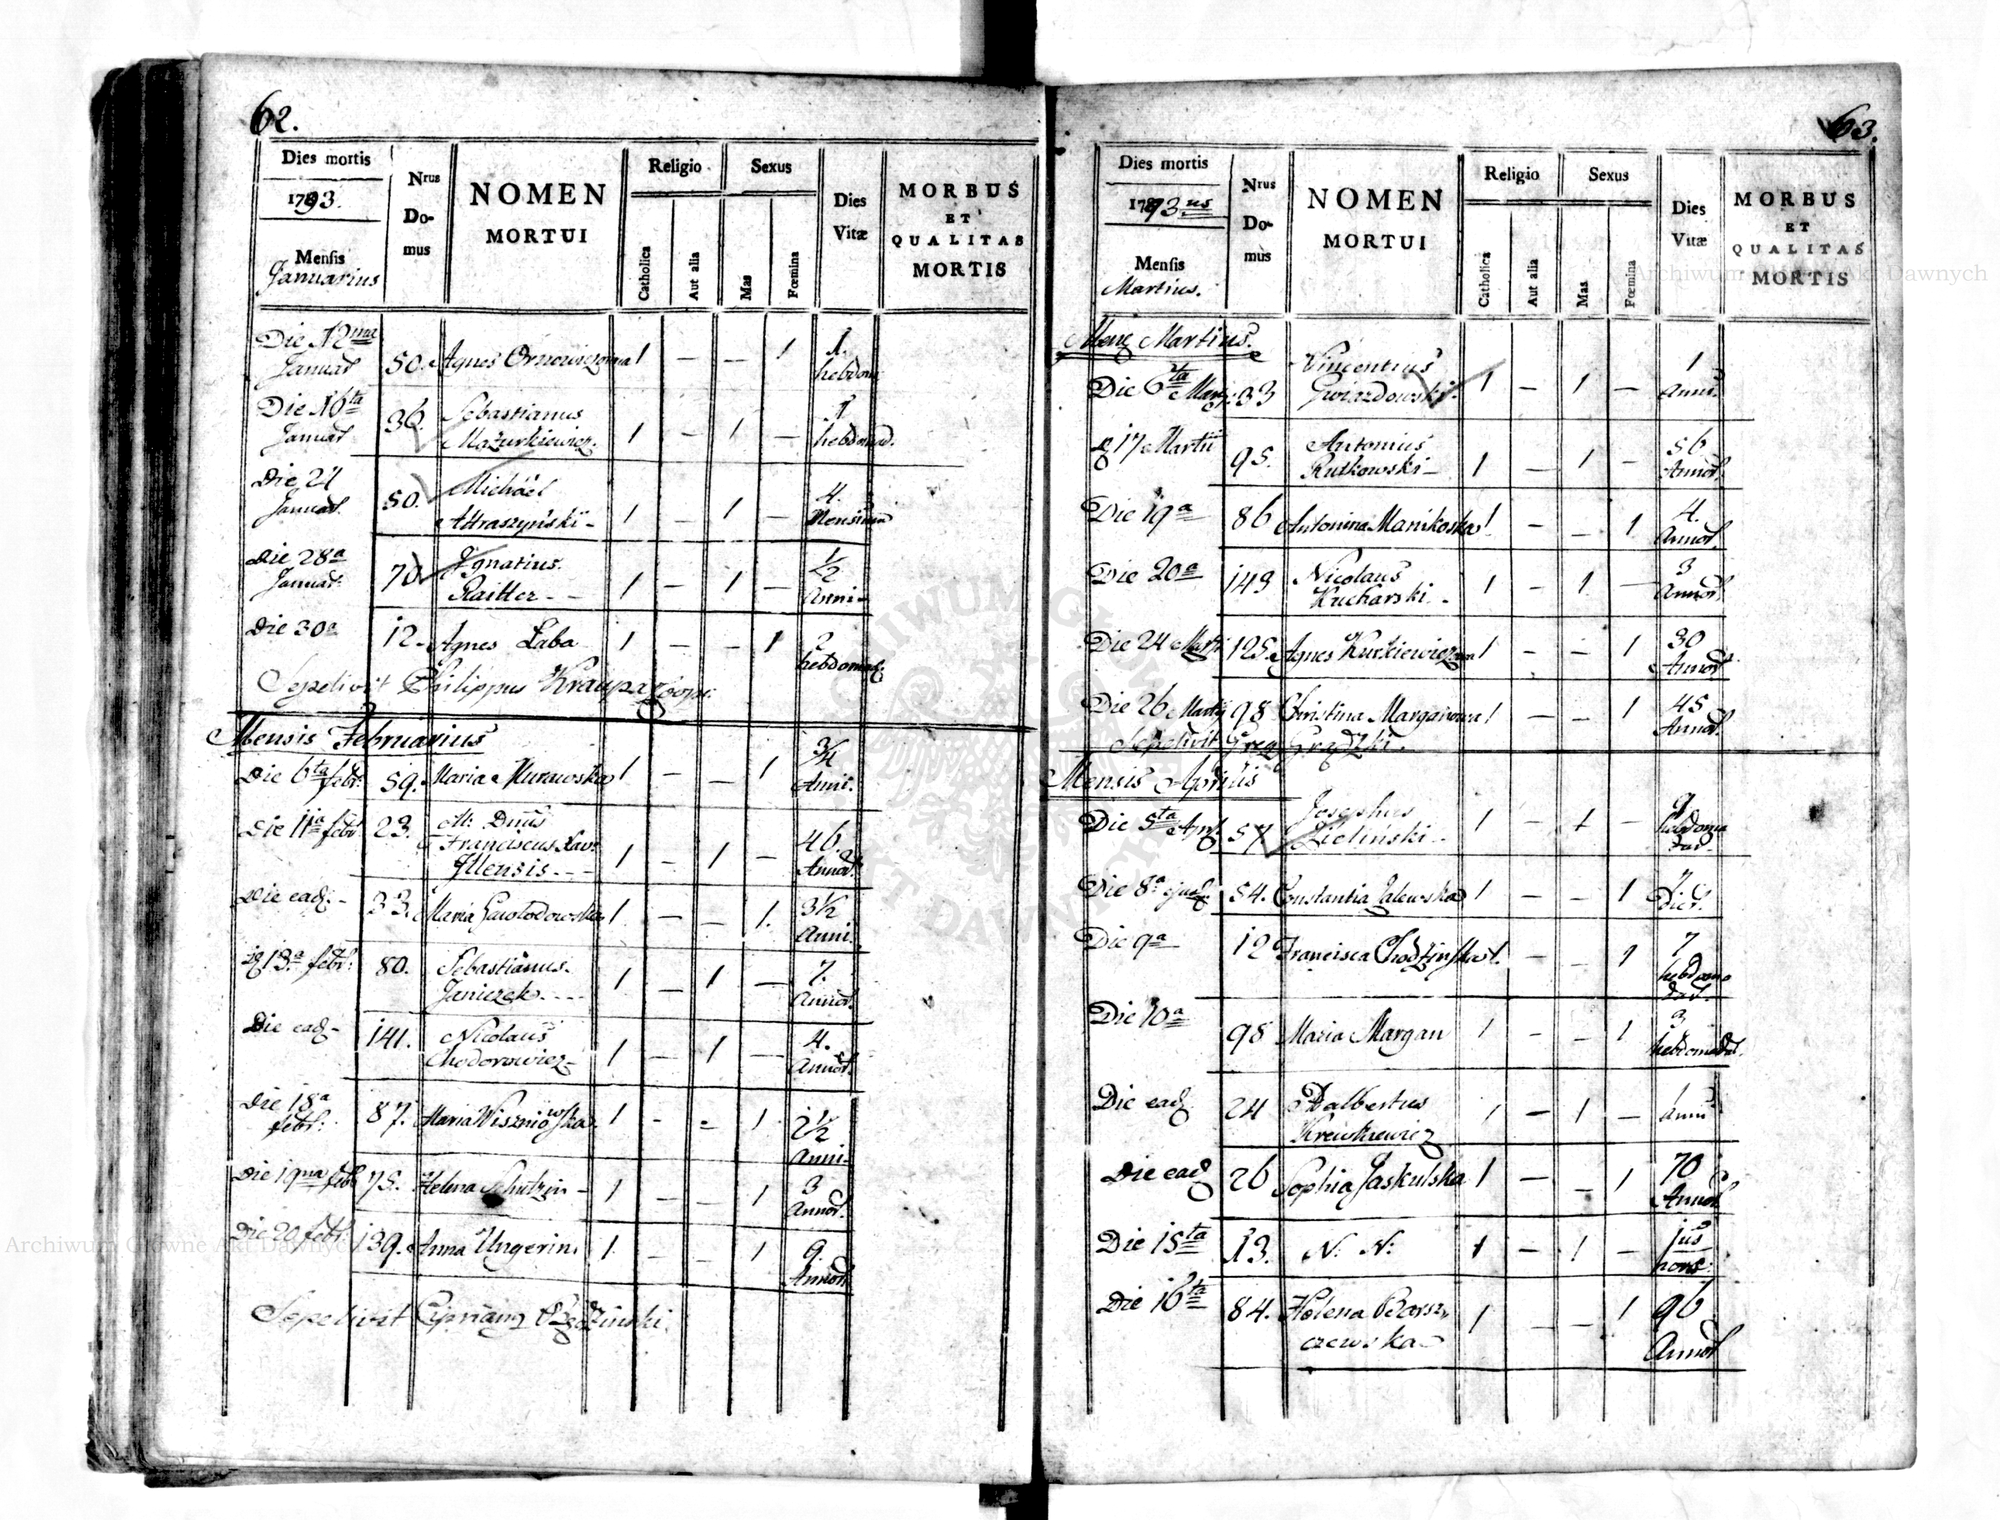 62.
Dies mortis
1793.
Mensis
Januarius
Nrus
Do-
mus
NOMEN
MORTUI
Religio
Catholica
Aut alia
Sexus
Mas
Fœmina
Dies
Vitæ
MORBUS
ET
QUALITAS
MORTIS
Die 12ma 1.
Januar 50. Agnes 1 — — 1 hebdom
Die 16ta Sebastianus 1
Januar 36. Mazurkiewicz. 1 — 1 — hebdomad.
Die 21 Michael 4.
Januar 50. 1 — 1 — Mensium
Die 28a Ignatius ½
Januar 70 Raitter 1 — 1 — Anni
Die 30a 12 Agnes Laba 1 — — 1 2
hebdomad.
Sepelivit Philippus
Mensis Februarius
Die 6ta febr. 59. Maria Murawska 1 — — 1 ¾
Anni.
Die 11a febr 23. M. Dnus
Franciscus Xav: 46.
Illensis 1 — 1 — Annor.
Die ead. 33. Maria 1 — — 1. 3½
Anni.
D 13a febr. 80. Sebastianus 7.
Janiczek 1 — 1 — Annor.
Die ead 141. Nicolaus 4.
Chodorowicz 1 — 1 — Annor.
Die 18a 87. Maria Wiszniowska. 1 - - 1 2½
febr. Anni
Die 19na febr 75. Helena 1 — — 1 3
Annor.
Die 20 febr. 139. Anna Ungerin 1 — — 1 9
Annor.
Sepelivit
63.
Dies mortis
1793us
Mensis
Martius.
Nrus
Do-
mus
NOMEN
MORTUI
Religio
Catholica
Aut alia
Sexus
Mas
Fœmina
Dies
Vitæ
MORBUS
ET
QUALITAS
MORTIS
Martius.
Die 6ta 33 Vincentius 1
Gwiazdowski. 1 — 1 — Anni.
D 17 Martii 95. Antonius 56
Rutkowski 1 — 1 — Annor.
Die 19a 86 Antonina Manikoska 1 — — 1 4.
Annor.
Die 20a 143 Nicolaus 3
Kucharski. 1 — 1 — Annor.
Die 24 125. Agnes 1 — — 1 30
Annor.
Die 26 98 Christina Marganowa 1 — — 1 45
Annor.
Sepelivit Greg.
Mensis Aprilis
Die 5ta Apr. 57 Josephus 9
Zielinski 1 — 1 — hebdoma
dar.
Die 8a 54. Constantia Zalewska 1 — — 1
Dier.
Die 9a 12 Francisca 1. — — 1 7
hebdoma
dar.
Die 10a 98 Maria Margan 1 — — 1 3
hebdomadar.
Die ead. 24 Adalbertus 1 — 1 — 1
Anni
Die ead 26 Sophia Jaskulska 1 — — 1 70
Annor.
Die 15ta 13. N. N. 1 — 1 — jus
horæ.
Die 16ta 84. Helena Borsz- 96
czewska 1 — — 1 Annor
Archiwum Główne Akt Dawnych
Archiwum Główne Akt Dawnych
ARCHIWUM GŁÓWNE AKT DAWNYCH